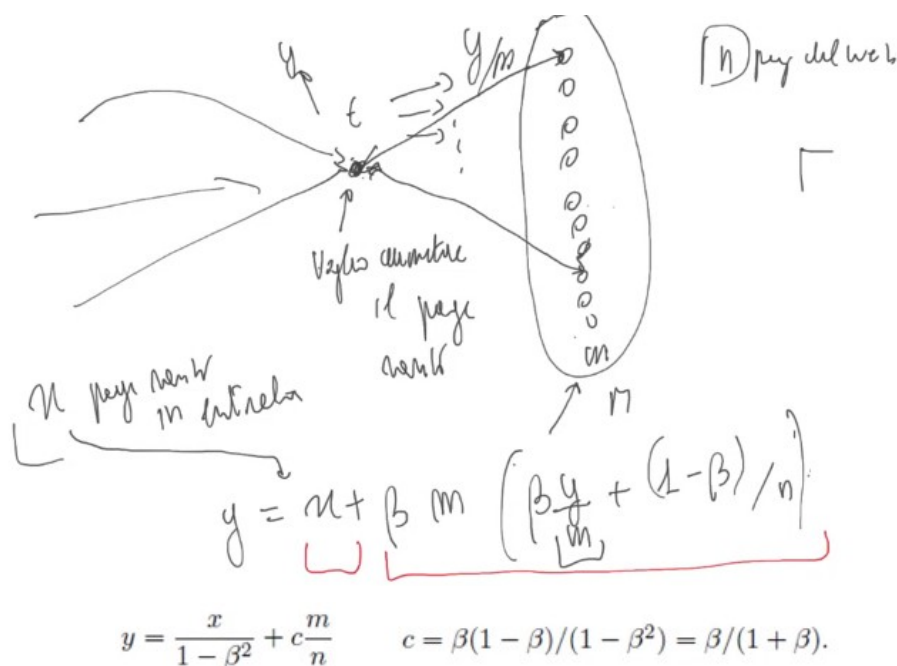 y
y/m
n pag del web
t
Voglio aumentare
il page
rank
m
x page rank
in entrata
m
y = x + β m ( β y/m + (1 - β) / n )
y = x/(1 − β²) + c m/n    c = β(1 − β)/(1 − β²) = β/(1 + β).